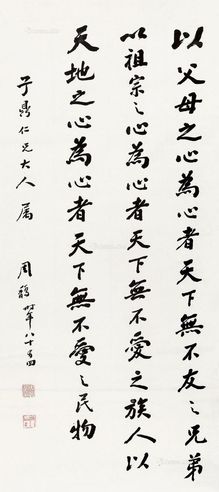 以父母之心為心者天下無不友之兄弟
以祖宗之心為心者天下無不愛之族人以
天地之心為心者天下無不愛之民物
子鼎仁兄大人屬
周馥時年八十四